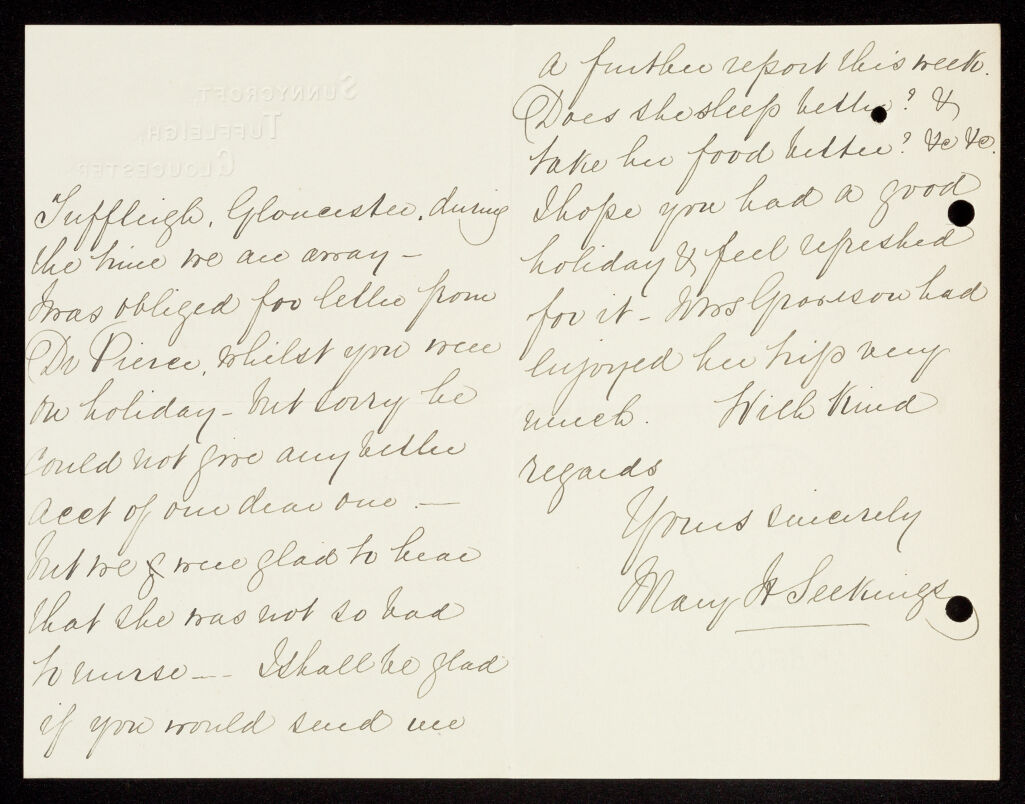 Sunnycroft,
Tuffleigh,
Gloucester
Tuffleigh, Gloucester, during
the time we are away –
Was obliged for letter from
Dr Pierce, whilst you were
on holiday – but sorry he
could not give any better
acct of our dear one. —
but we were glad to hear
that she was not so bad
to nurse -- I shall be glad
if you would send me
a further report this week.
Does she sleep better? &
take her food better? &c &c.
I hope you had a good
holiday & feel refreshed
for it – Mrs had
enjoyed her trip very
much. With Kind
regards
Yours sincerely
Mary H Seekings